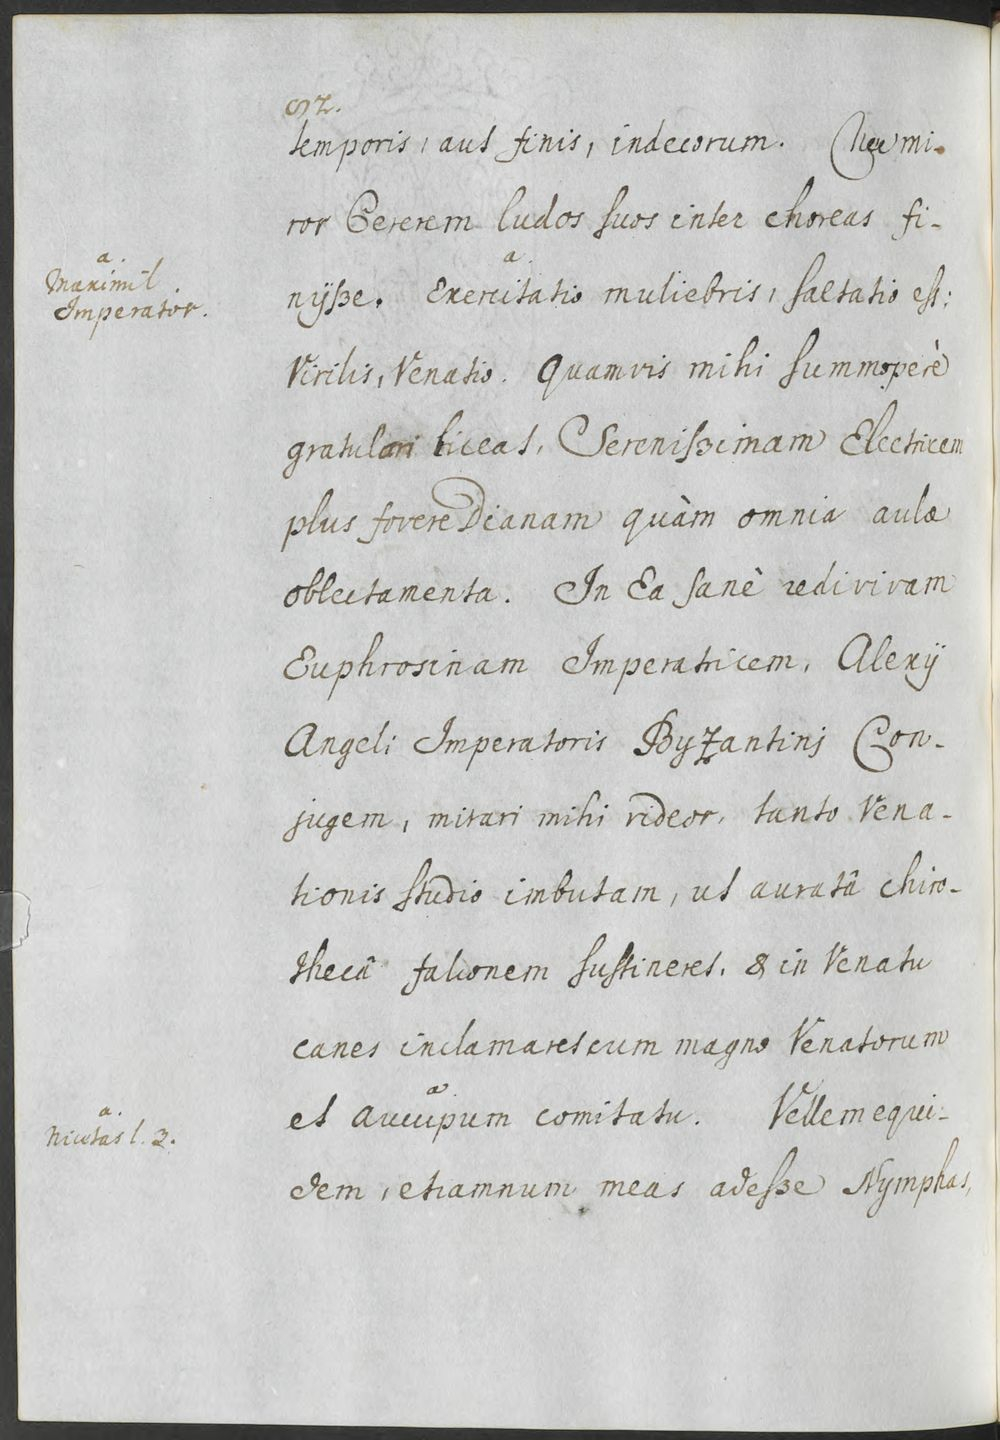 92.
temporis, aut finis, indecorum. Nec mi-
ror Cererem ludos suos inter choreas fi-
a.
Maximil.
Imperator.
a
nijsse. Exercitatio muliebris, saltatio est;
Virilis, Venatio. Quamvis mihi summoperè
gratulari liceat, Serenissimam Electricem
plus fovere Dianam quàm omnia aulæ
oblectamenta. In Ea sanè redivivam
Euphrosinam Imperatricem, Alexij
Angeli Imperatoris Byzantinj Con-
jugem, mirari mihi videor, tanto Vena-
tionis studio imbutam, ut auratâ chiro-
thecâ falconem sustineret, & in Venatu
canes inclamaret cum magno Venatorum
a
et aucupum comitatu. Vellem equi-
a.
Nicetas l. 3.
dem, etiamnum meas adesse Nymphas,